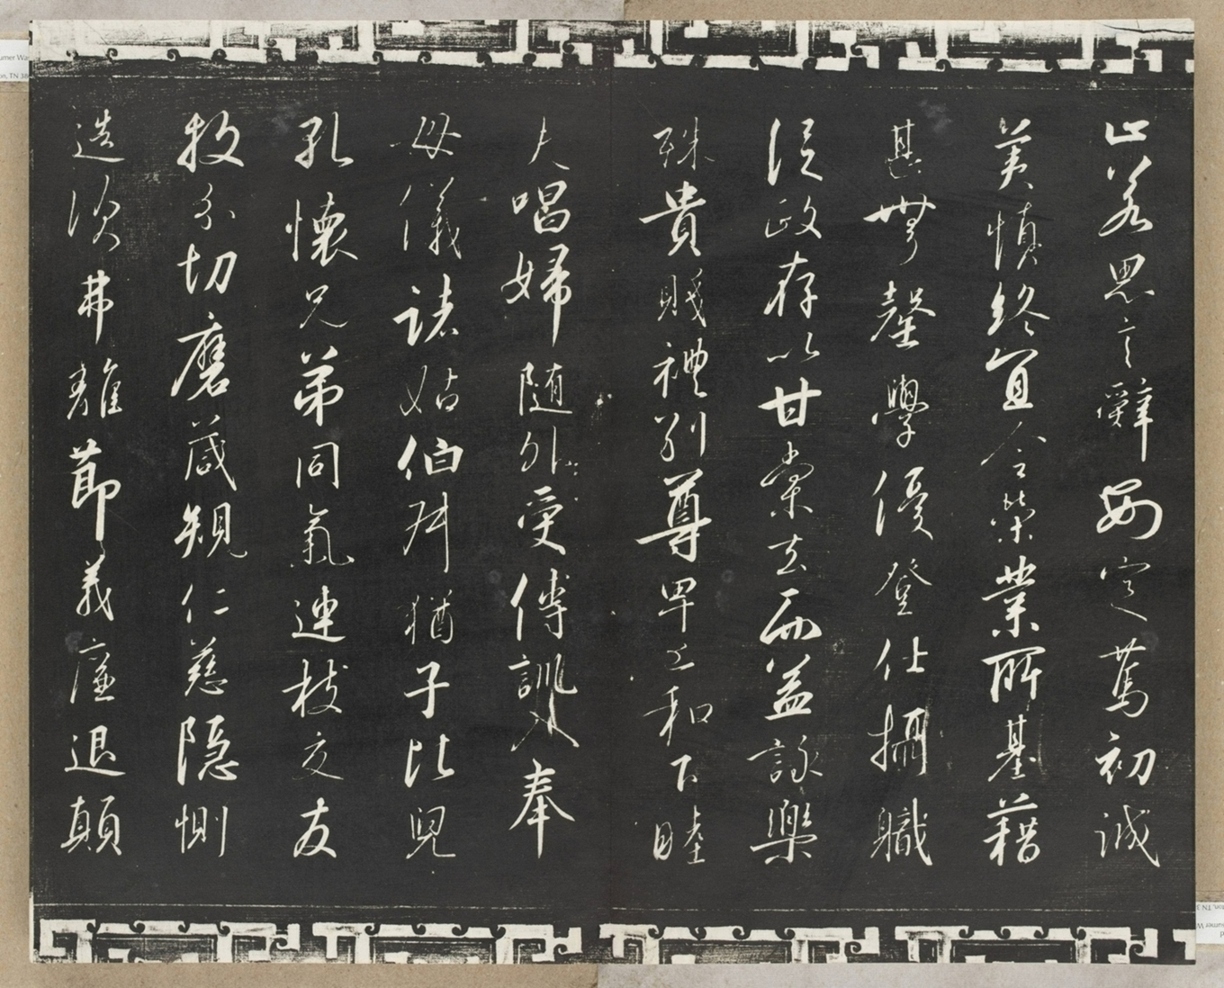 止若思言辭安定篤初誠
美慎終宜令榮業所基藉
甚無罄學優登仕攝職
從政存以甘棠去而益詠樂
殊貴賤禮別尊卑上和下睦
夫唱婦随外受傅訓入奉
母儀諸姑伯叔猶子比兒
孔懷兄弟同氣連枝交友
投分切磨箴規仁慈隱惻
造次弗離節義廉退顛